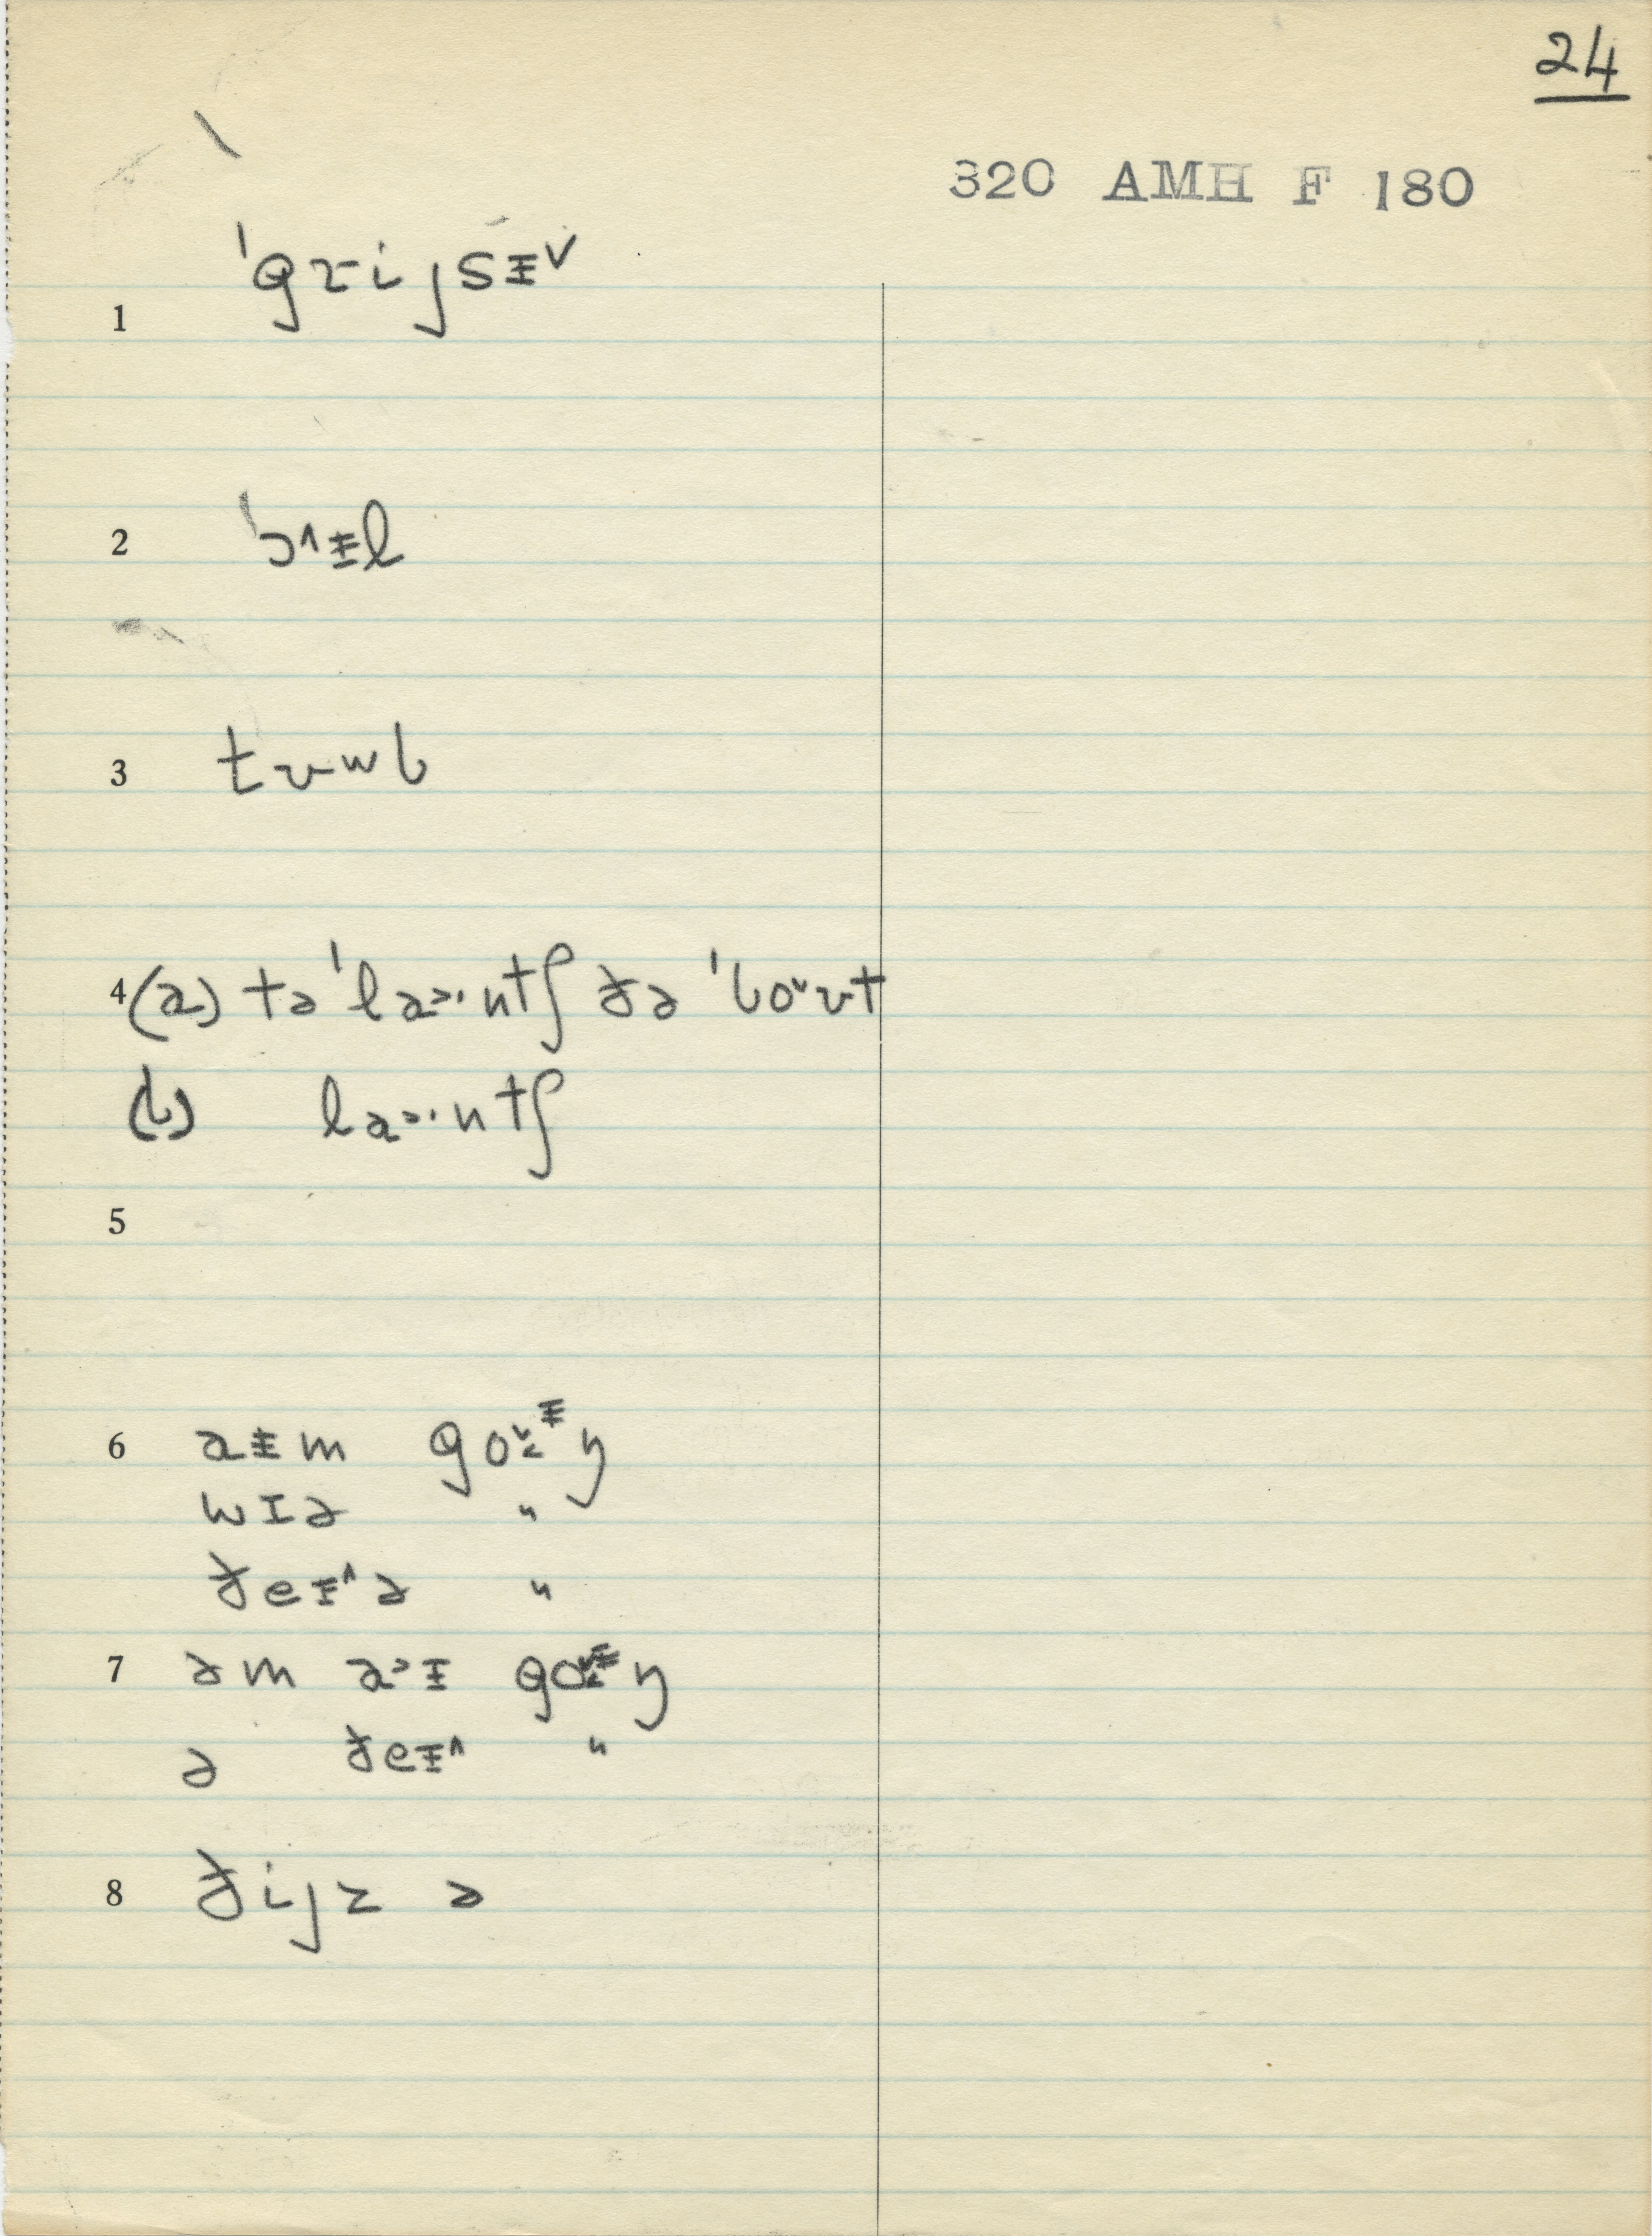 24
320 AMH F 180
1 ˈgɹijsɨ˅
2 ˈɔ˄ɨl
3 tʊwb
4 (a) təˈla>·ntʃ ðə ˈbo˅ʊt
(b) la>·ntʃ
5
6 aɨm go˅˂ᵻŋ
wɪə "
ðeɨ˄ə "
7 əm a>ɪ go˅˂ᵻŋ
ə ðeɨ˄ "
8 ðijz ə